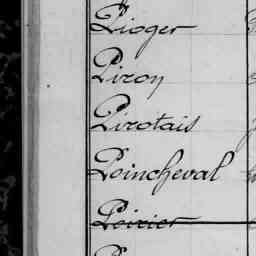 Pioger
Piron
Pirotais
Poincheval
Poirier